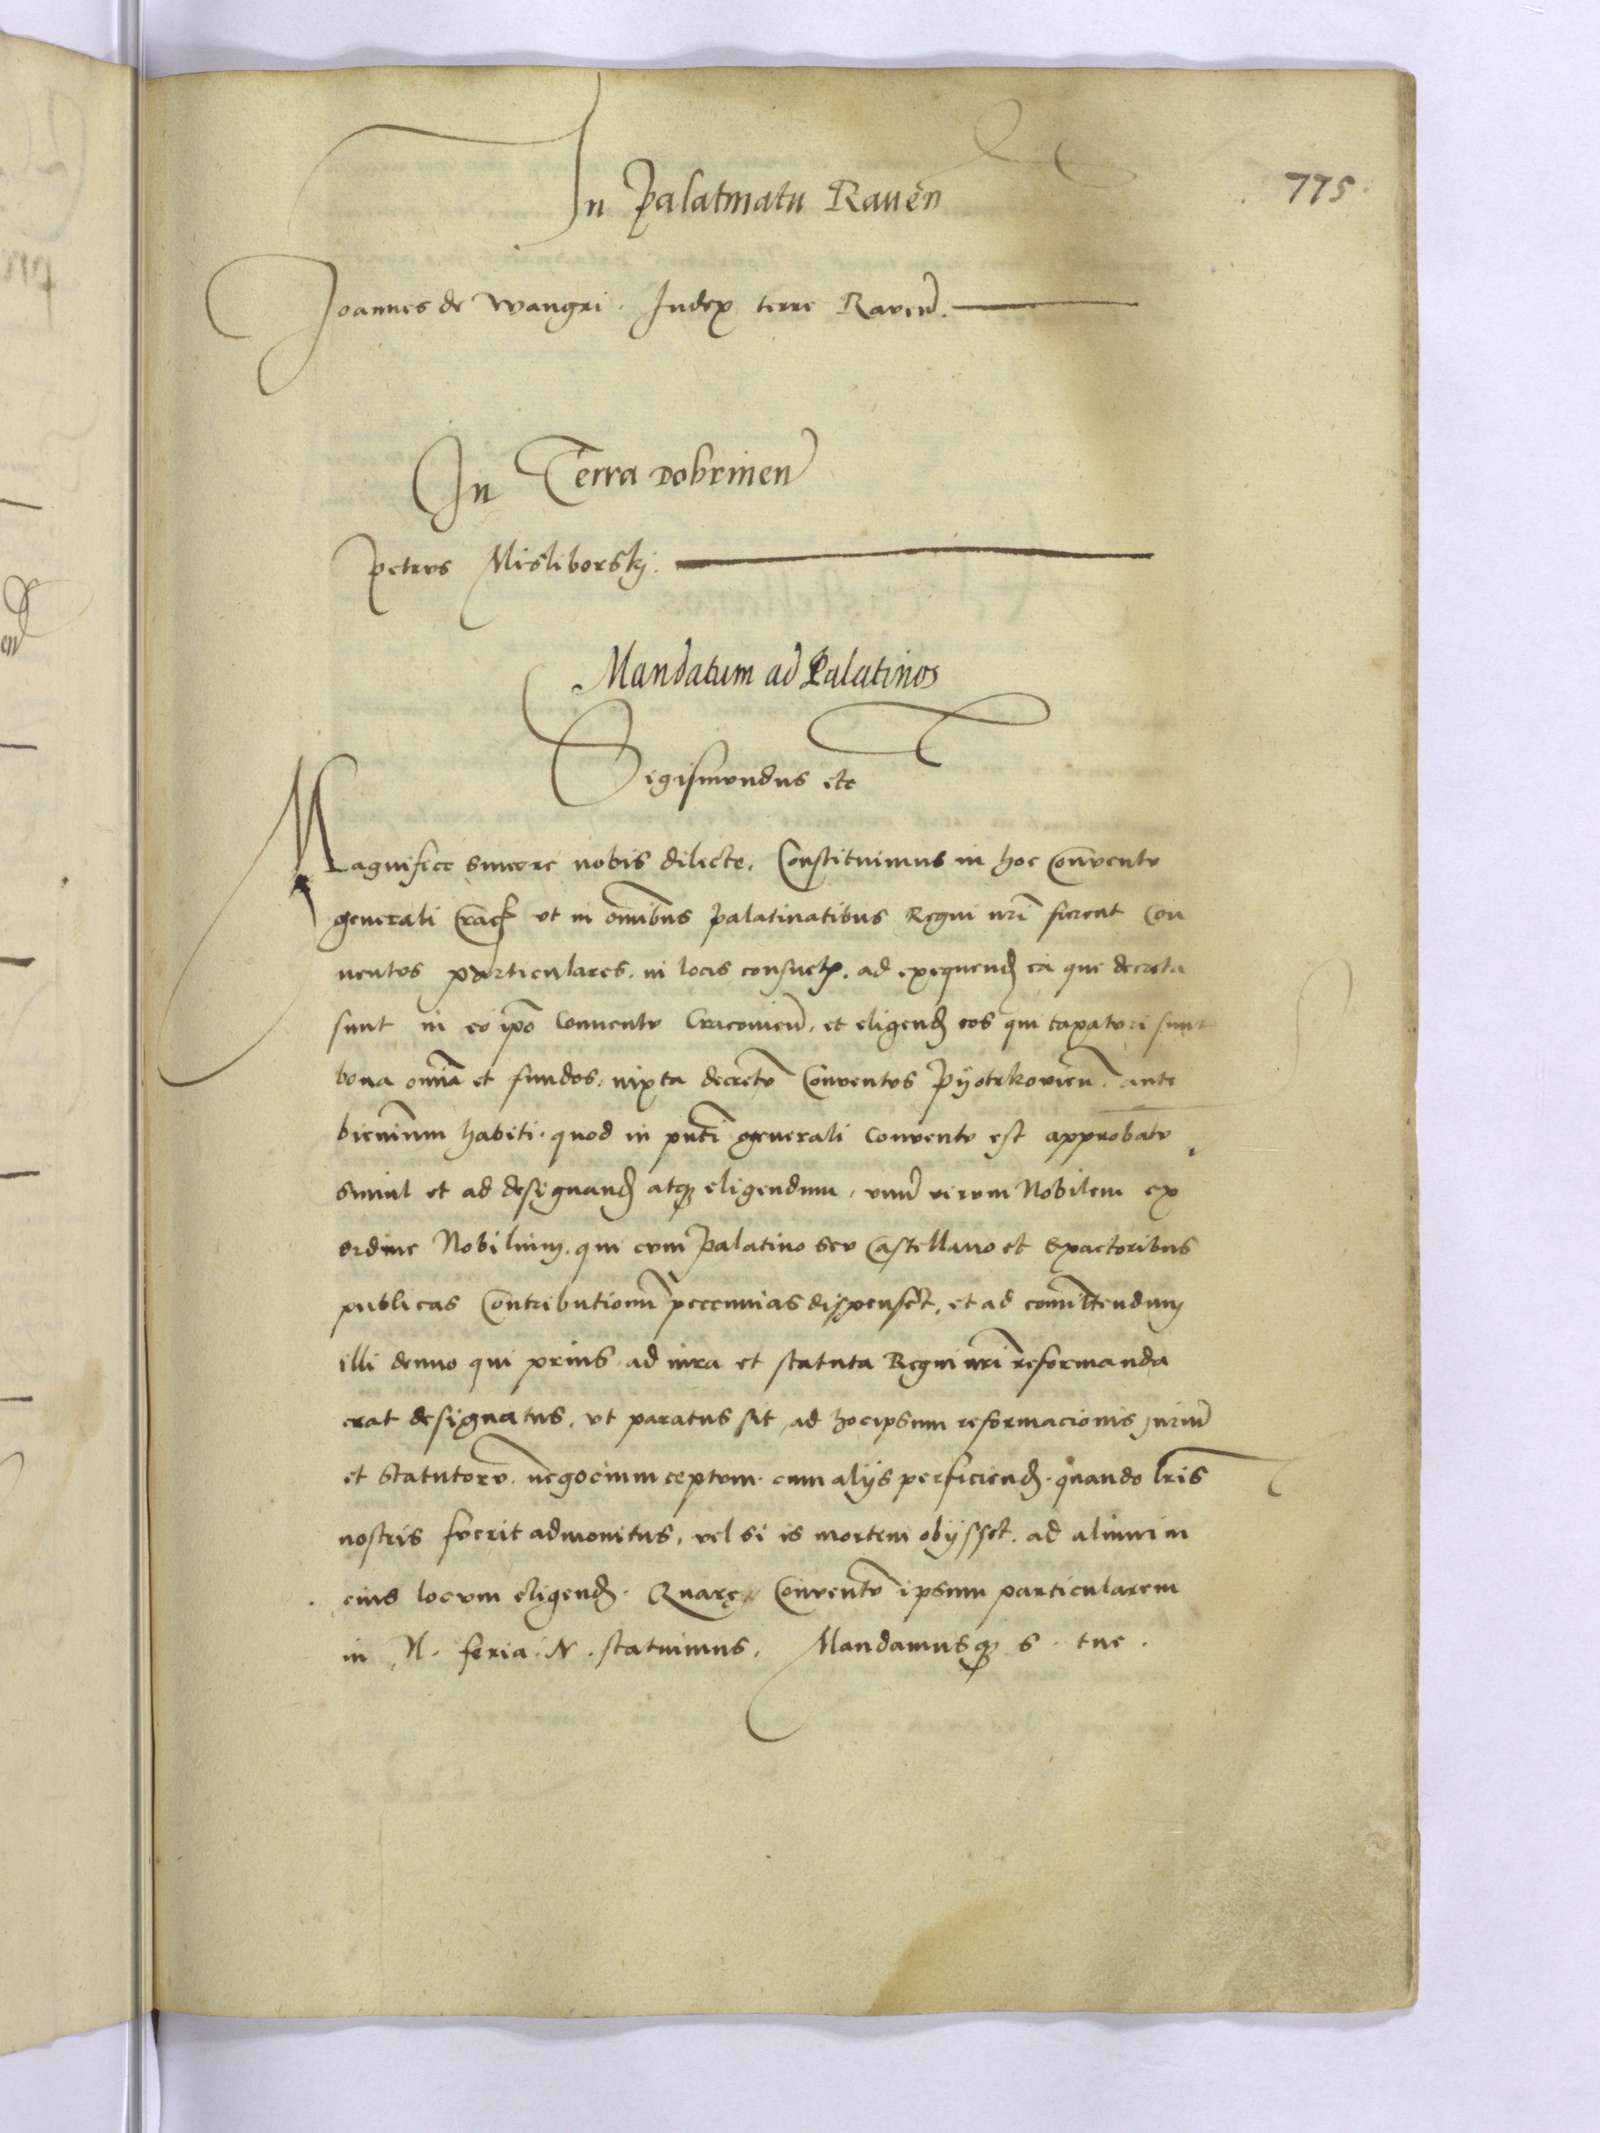 775.
In Palatinatu Raven
Joannes de Wangri. Judex terre Raven.
In Terra Dobrinen
Petrus Misliborskj.
Mandatum ad Palatinos
Sigismundus etc
Magnifice sincere nobis dilecte. Constituimus in hoc Conventu
generali Crac ut in omnibus palatinatibus Regni nri fierent Con
ventus particulares. in locis consuet. ad exequend ea que decreta
sunt in eo ipo Conventu Cracovien. et eligend eos qui taxaturi sunt
bona omnia et fundos, iuxta decretu Conventus Pyotrkovien. ante
biennium habiti. quod in pnti generali Conventu est approbatu,
simul et ad designand atq eligendum, unu virum Nobilem ex
ordine Nobilium. qui cum Palatino seu Castellano et Exactoribus
publicas Contributionu peccunias dispenset, et ad comittendum
illi denuo qui prius ad iura et statuta Regni nri reformanda
erat designatus, ut paratus sit ad hocipsum reformacionis juriu
et statutoru. negocium ceptum. cum alijs perficiend. quando lris
nostris fuerit admonitus, vel si is mortem obijsset. ad alium in
eius locum eligend. Quare Conventu ipsum particularem
in N. feria. N. statuimus. Mandamusq s. tue.